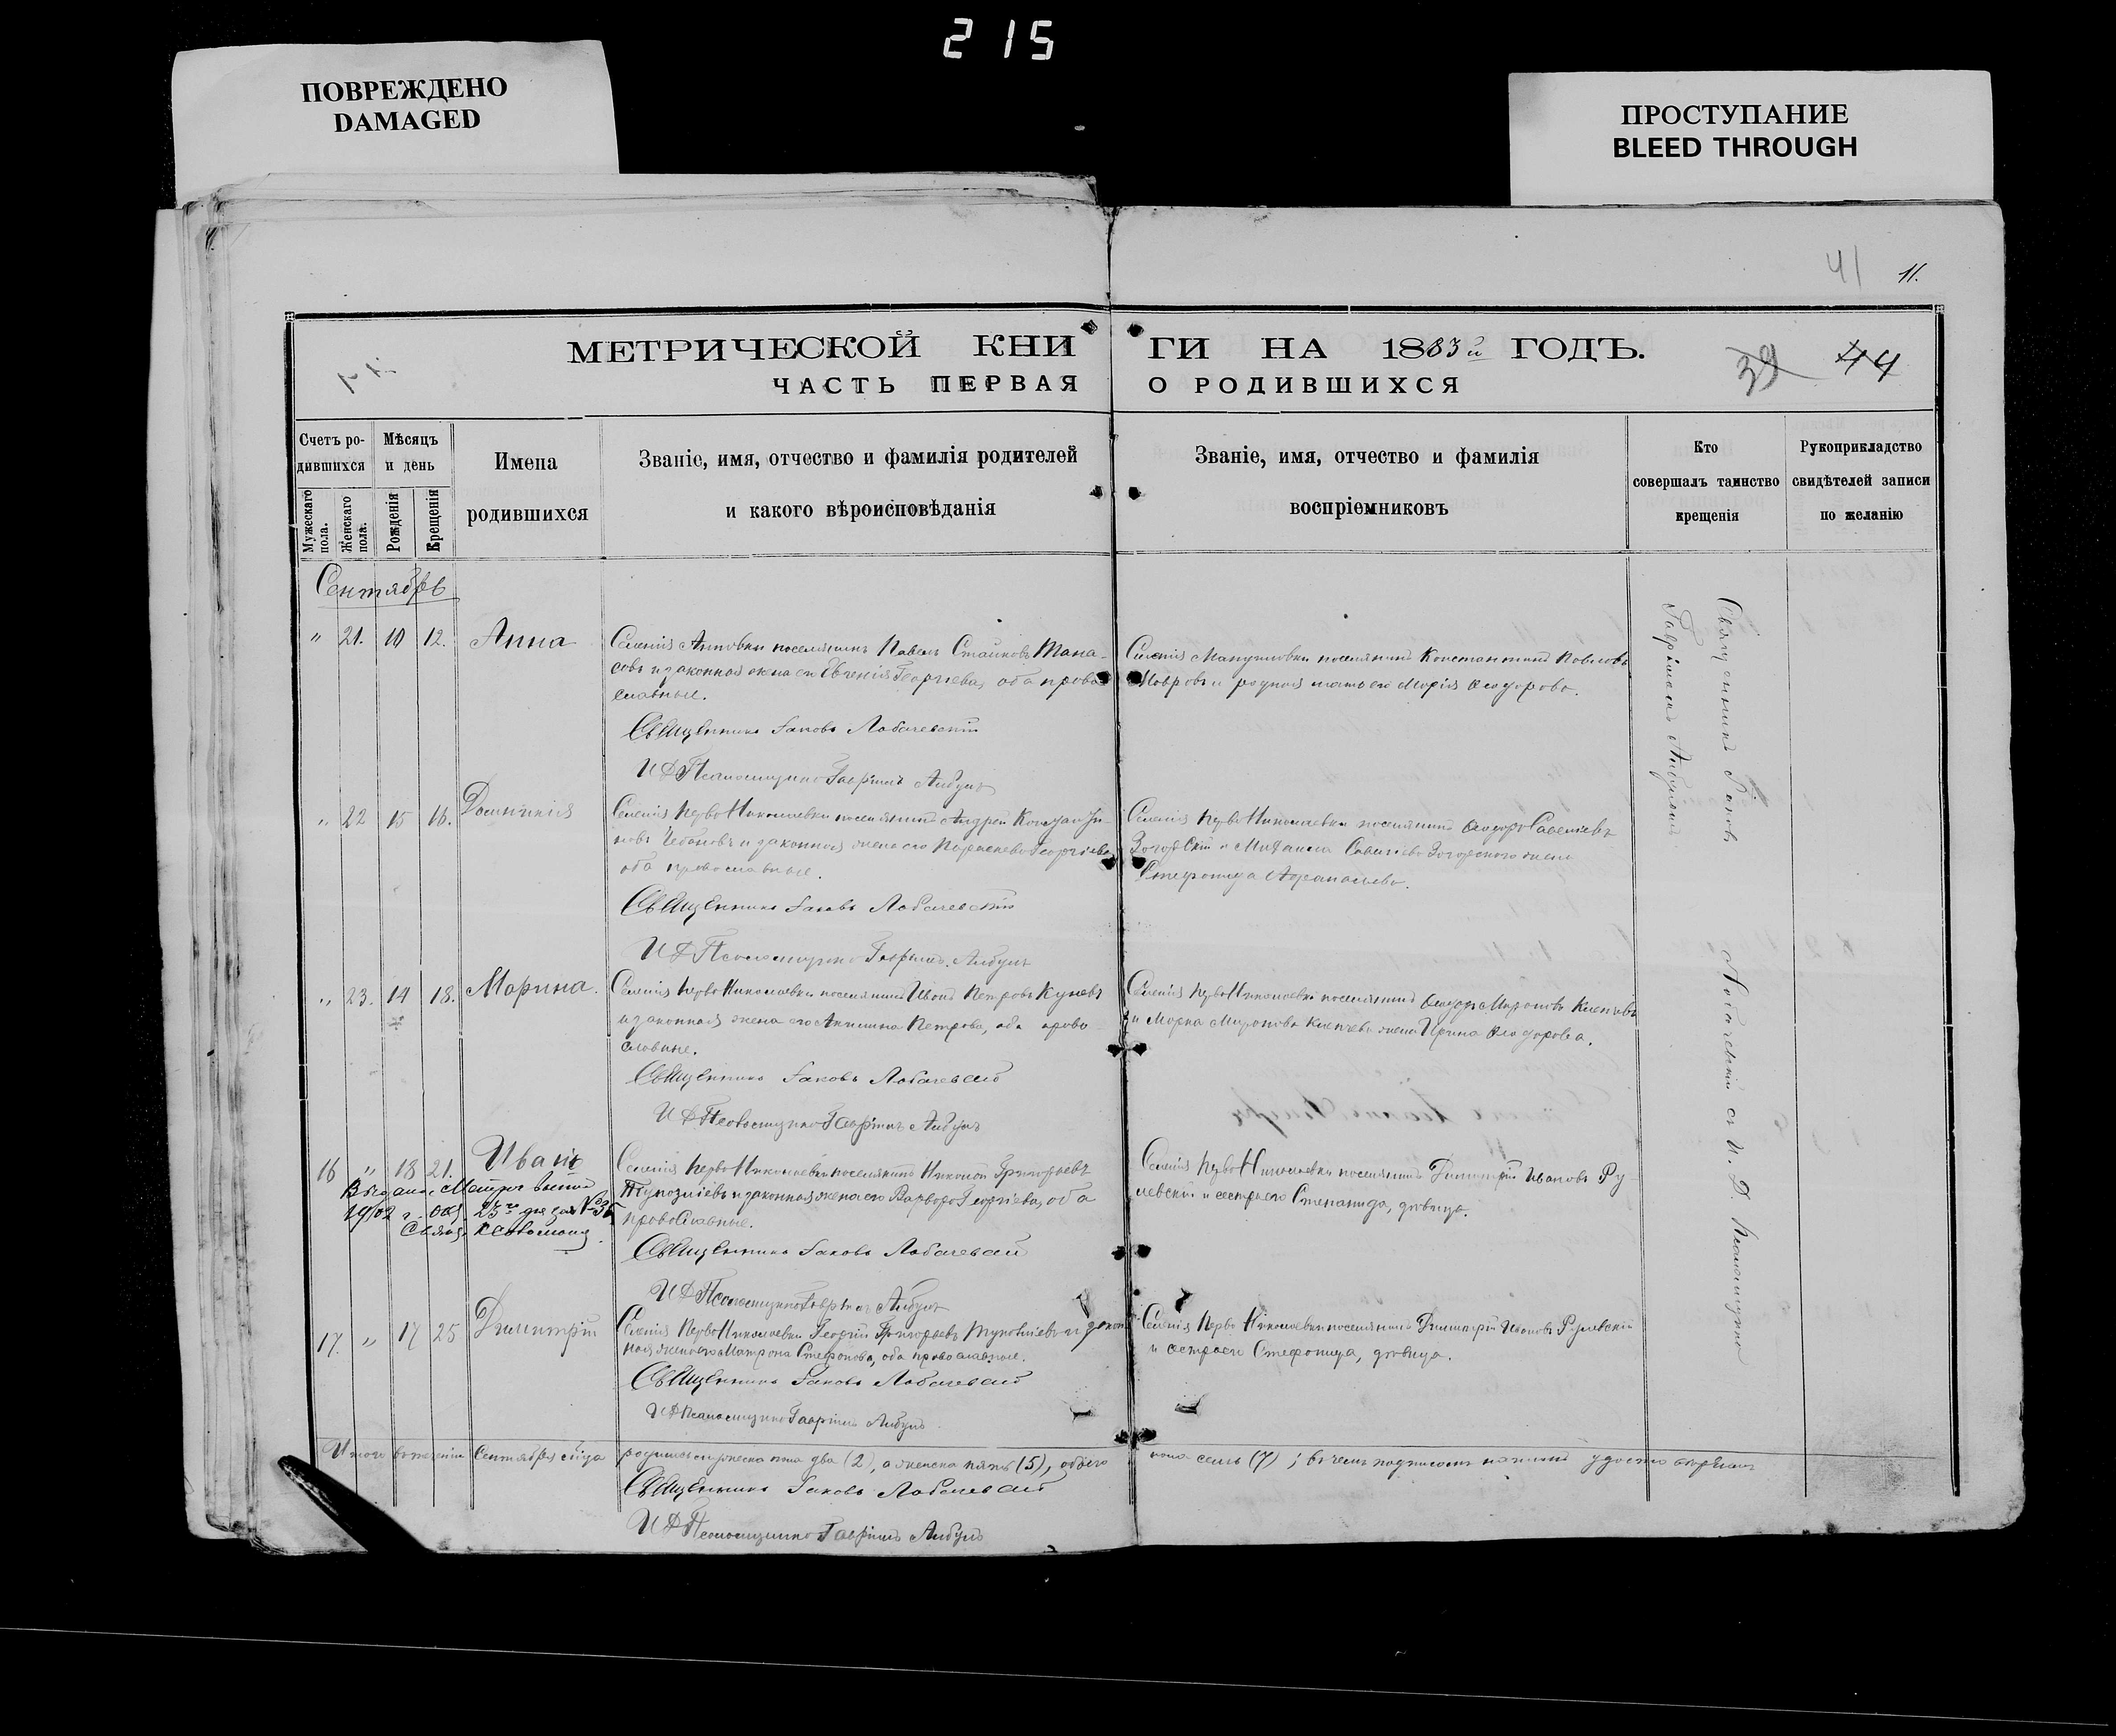 215
ПОВРЕЖДЕНО
DAMAGED
ПРОСТУПАНИЕ
BLEED THROUGH
41 11.
МЕТРИЧЕСКОЙ КНИГИ НА 1883й ГОДЪ.
39 44
ЧАСТЬ ПЕРВАЯ О РОДИВШИХСЯ
Счетъ родившихся
Мужескаго пола.
Женскаго пола.
Мѣсяцъ и день
Рожденія
Крещенія
Имена
родившихся
Званіе, имя, отчество и фамилія родителей
и какого вѣроисповѣданія
Званіе, имя, отчество и фамилія
воспріемниковъ
Кто
совершалъ таинство
крещенія
Рукоприкладство
свидѣтелей записи
по желанію
Сентябрь
" 21. 10 12. Анна
поселянинъ Павелъ Стайковъ Тана-
совъ и законная жена его Евгенія Георгіева, оба право-
славные.
поселянинъ Константинъ Павловъ
Мавровъ и родная мать его Марія Ѳеодорова.
Священникъ Іаковъ Лобачевскій
И Д Псаломщика Гавріилъ
" 22 15 16. Домникія
Селенія Перво Николаевки поселянинъ Андрей
Чебановъ и законная жена его Параскева Георгіева
оба православные.
Селенія Перво Николаевки поселянинъ Ѳеодоръ Савеліевъ
Загорскій и Михаила Савеліева Загорского жена
Стефанида Афанасьева.
Священникъ Іаковъ Лобачевскій
И Д Псаломщика Гавріилъ
" 23. 14 18. Марина.
Селенія Перво Николаевки поселянинъ Иванъ Петровъ Куневъ
и законная жена его Петрова, оба право
славные.
Селенія Перво Николаевки поселянинъ Ѳеодоръ Мироновъ
и Марка Миронова жена Ирина Ѳеодорова.
Священникъ Іаковъ Лобачевскій
И Д Псаломщика Гавріилъ
16 " 18 21. Иванъ
Селенія Перво Николаевки поселянинъ Николай Григорьевъ
и законная жена его Варвара Георгіева, оба
православные.
Селенія Перво Николаевки поселянинъ Димитрій Ивановъ Ру
левскій и сестра его Степанида, дѣвица.
1902 г. 23го дня за №36
Священникъ Іаковъ Лобачевскій
И Д Псаломщика Гавріилъ
17. " 17 25 Димитрій
Селенія Перво Николаевки Георгій Григорьевъ и закон
ная жена его Матрона Стефанова, оба православные.
Селенія Перво Николаевки поселянинъ Димитрій Ивановъ Рулевскій
и сестра его Стефанида, дѣвица.
Священникъ Іаковъ Лобачевскій
И Д Псаломщика Гавріилъ
Священникъ Іаковъ
Лобачевскій съ И. Д. Псаломщика
Гавріиломъ
Итого въ теченіи Сентября м-ца родилось мужеска пола два (2), а женска пять (5), обоего пола семь (7); въ чемъ подписомъ нашимъ удостовѣряемъ
Священникъ Іаковъ Лобачевскій
И Д Псаломщика Гавріилъ